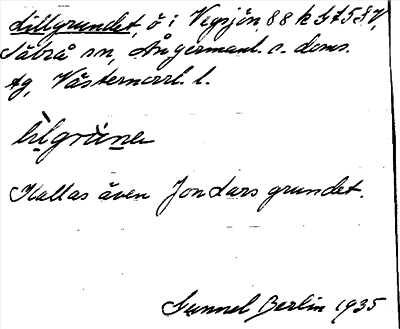 Lillgrundet, ö i Vegsjön, 88 h
Säbrå sn, Ångermanl. s. doms.
tg, Västernorrl. l.
lilgrùne
Kallas även Jon Lars grundet.
Gunnel Berlin 1935